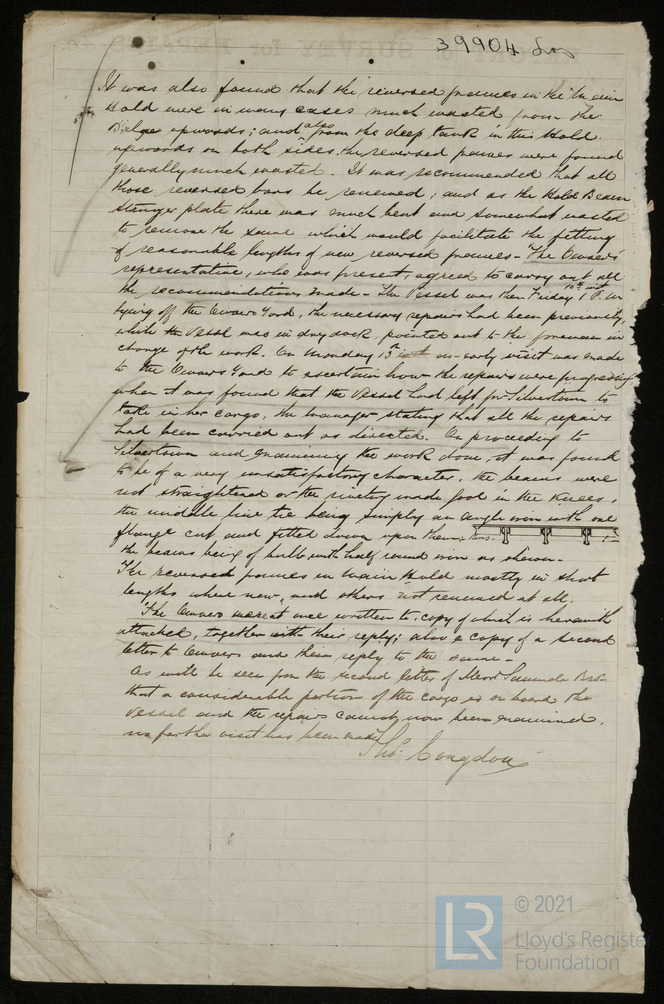 39904 Lon
It was also found that the reversed frames in the Main
Hold were in many cases much wasted from the
Bilge upwards; and also from the deep tank in this Hold
upwards on both sides the reversed frames were found
generally much wasted. It was recommended that all
those reversed bars be renewed; and as the Hold Beam
Stringer plate there was much bent and somewhat wasted
to remove the same which would facilitate the fitting
of reasonable lengths of new reversed frames - The Owners'
representative, who was present, agreed to carry out all
the recommendations made - The Vessel was then Friday 10th inst
lying off the Owners Yard, the necessary repairs had been previously,
while the Vessel was in dry dock, pointed out to the foreman in
charge of the work. On Monday 13th inst an early visit was made
to the Owners Yard to ascertain how the repairs were progressing
when it was found that the Vessel had left for Silvertown to
take in her cargo, the manager stating that all the repairs
had been carried out as directed. On proceeding to
Silvertown and examining the work done, it was found
to be of a very unsatisfactory character, the beams were
not straightened or the riveting made good in the knees,
the middle line tie being simply an angle iron with one
flange cut and fitted down upon them, thus
the beams being of bulb with half round iron as shewn -
The reversed frames in Main Hold mostly in short
lengths where new, and others not renewed at all.
The Owners were at once written to, copy of which is herewith
attached, together with their reply; also a copy of a second
letter to Owners and their reply to the same -
As will be seen from the second letter of Messrs Bros
that a considerable portion of the cargo is on board the
Vessel and the repairs cannot now been examined,
no further visit has been made
Thos. Congdon
© 2021
LR
Lloyd's Register
Foundation